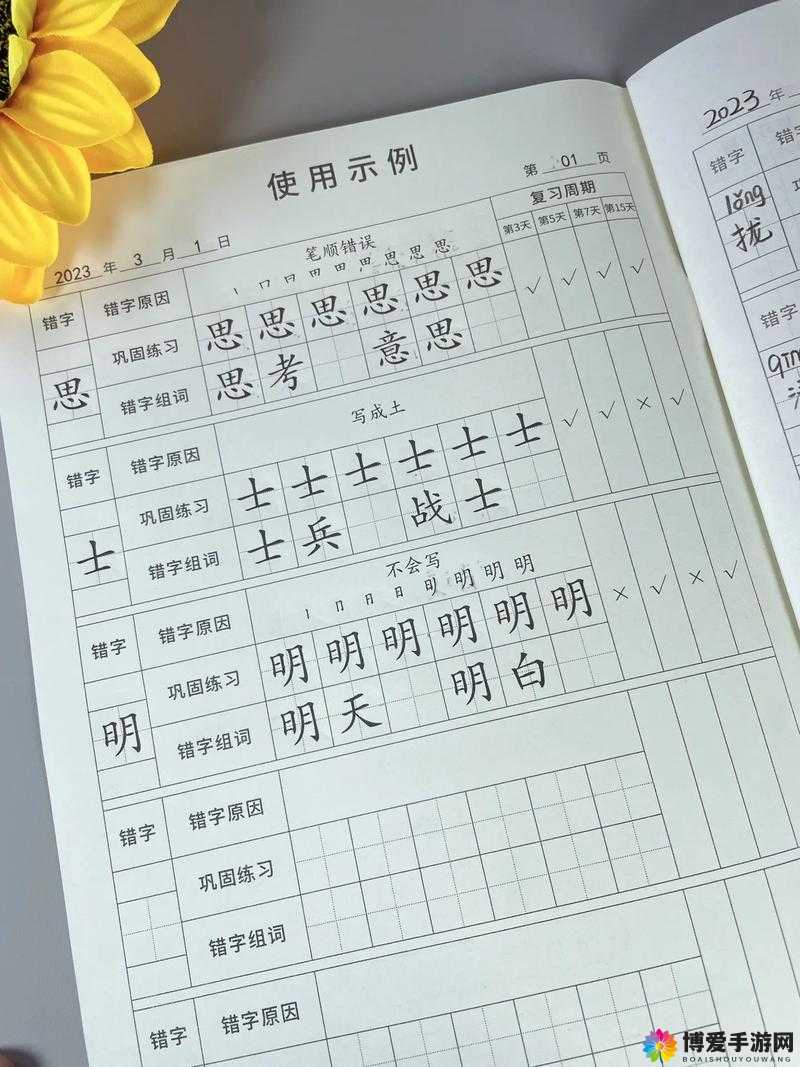 使用示例
第 01 页
2023 年 3 月 1 日
复习周期
第3天 第5天 第7天 第15天
错字 错字原因 笔顺错误
思 思 思
巩固练习 思 思 思 思 思 思 √ √ √ √
思 错字组词 思考 意思
错字 错字原因 写成土
巩固练习 士 士 士 士 士 士 √ √ × √
士 错字组词 士兵 战士
错字 错字原因 不会写
明 明 明 明
巩固练习 明 明 明 明 明 明 × √ × √
明 错字组词 明天 明白
错字 错字原因
巩固练习
错字组词
错字 错字原因
2023 年
错字 错字
lǒng
拢
错字
博爱手游网
BOAISHOUYOUWANG